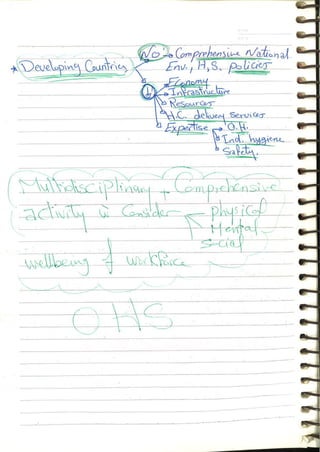 No: → Comprehensive National
Env., H.S. policies
* Developing Countries
↓ Economy
Infrastructure
Resources
H.C. delivery services
Expertise → O.H.
Ind. hygiene
Safety.
Multidisciplinary + Comprehensive
activity ù Consider physical
Mental
Social
wellbeing of workforce
OHS